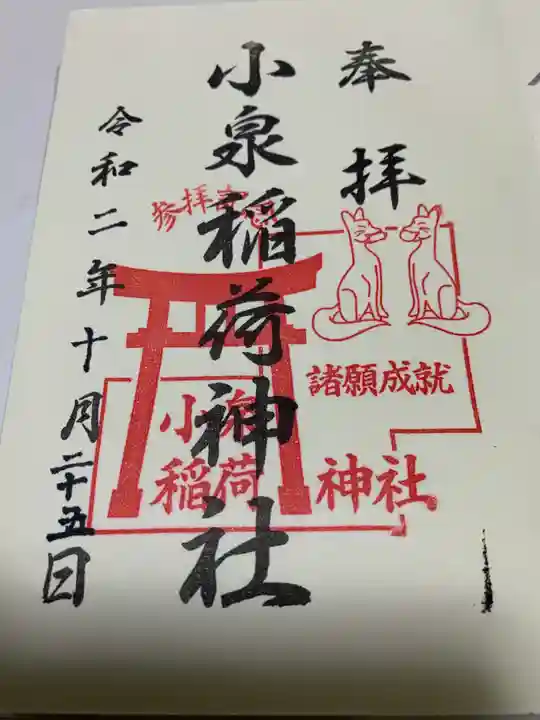 奉拝
小泉稲荷神社
令和二年十月二十五日
参拝記念
諸願成就
小泉
稲荷神社